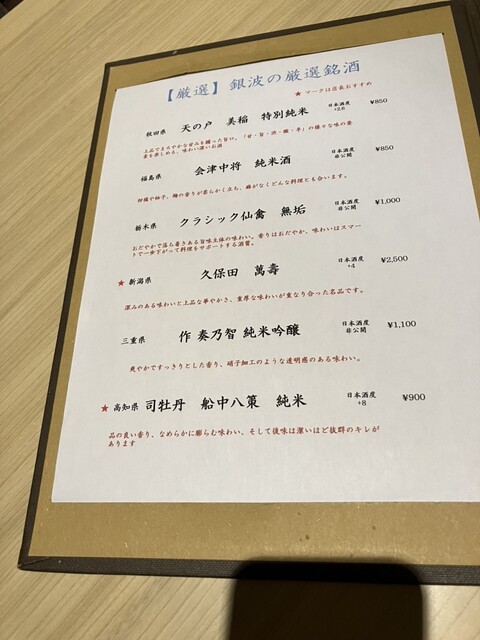 【厳選】 銀波の厳選銘酒
★ マークは店長おすすめ
秋田県 天の戸 美稲 特別純米 日本酒度 +2.6 ¥850
上品でまろやかな甘みを纏った旨い。「甘・旨・渋・酸・辛」の様々な味の要
素を楽しめる、味わい深いお酒
福島県 会津中将 純米酒 日本酒度 非公開 ¥850
柑橘や柚子、梅の香りが柔らかく立ち、癖がなくどんな料理とも合います。
栃木県 クラシック仙禽 無垢 日本酒度 非公開 ¥1,000
おだやかで落ち着きある旨味主体の味わい。香りはおだやか、味わいはスマー
トで一歩下がって料理をサポートする酒質。
★ 新潟県 久保田 萬壽 日本酒度 +4 ¥2,500
深みのある味わいと上品な華やかさ、重厚な味わいが重なり合った名品です。
三重県 作 奏乃智 純米吟醸 日本酒度 非公開 ¥1,100
爽やかですっきりとした香り、硝子細工のような透明感のある味わい。
★ 高知県 司牡丹 船中八策 純米 日本酒度 +8 ¥900
品の良い香り、なめらかに膨らむ味わい、そして後味は潔いほど抜群のキレが
あります